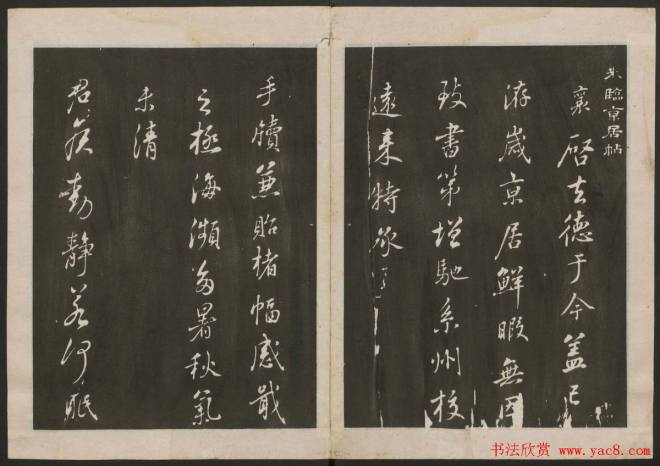 米臨京居帖
襄啓去德于今蓋已
游歲京居鮮暇無因
致書第增馳系州校
遠來特承
手牘兼貽楮幅感戢
之極海瀕多暑秋氣
未清
君侯動靜若何眠
书法欣赏 www.yac8.com